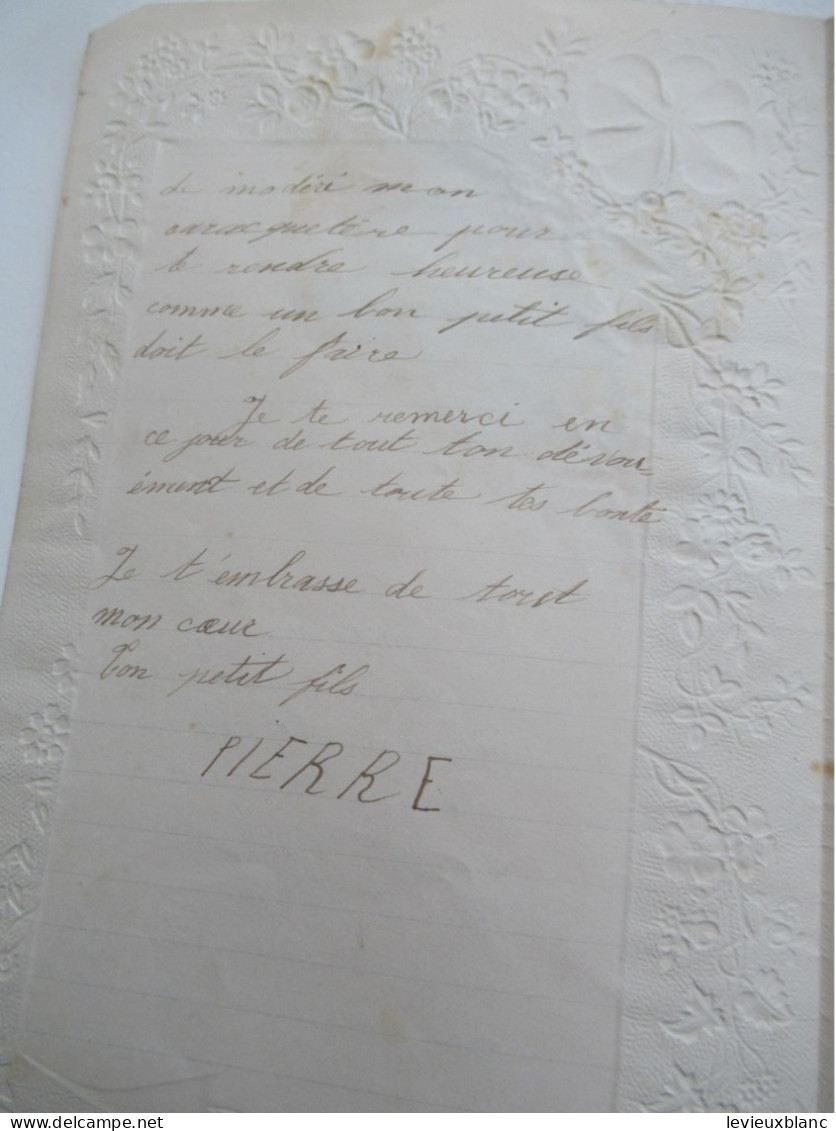 de modéré mon
carracquetère pour
te rendre heureuse
comme un bon petit fils
doit le faire
Je te remerci en
ce jour de tout ton dévou
ement et de toute tes bonté
Je t'embrasse de tout
mon cœur
Ton petit fils
PIERRE
delcampe.net
levieuxblanc